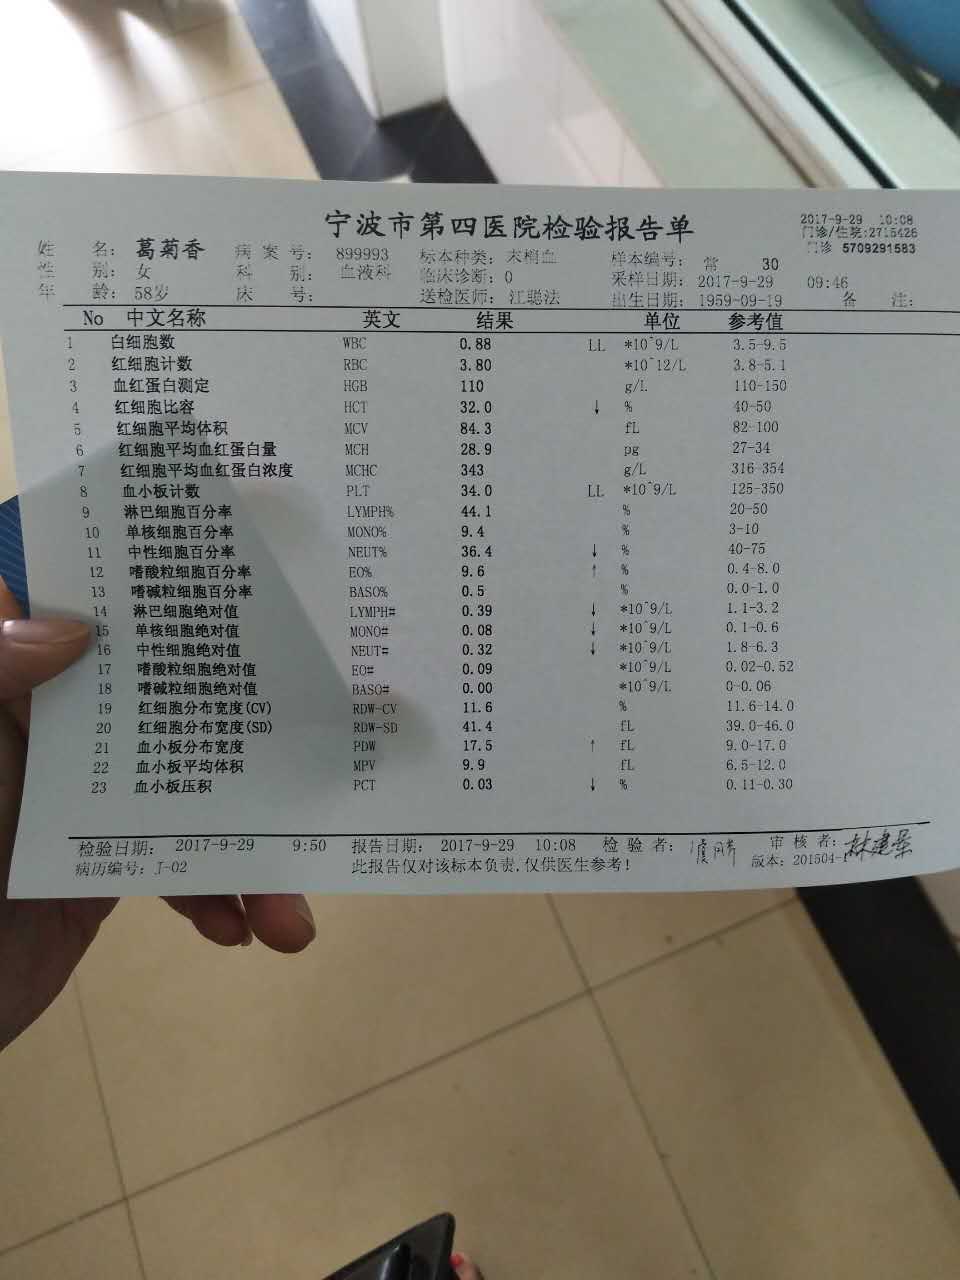 宁波市第四医院检验报告单
2017-9-29 10:08
门诊/住院:2715426
门诊 5709291583
姓 名: 葛菊香 病 案 号: 899993 标本种类: 末梢血 样本编号: 常 30
性 别: 女 科 别: 血液科 临床诊断: 0 采样日期: 2017-9-29 09:46
年 龄: 58岁 床 号: 送检医师: 江聪法 出生日期: 1959-09-19 备 注:
No 中文名称 英文 结果 单位 参考值
1 白细胞数 WBC 0.88 LL *10^9/L 3.5-9.5
2 红细胞计数 RBC 3.80 *10^12/L 3.8-5.1
3 血红蛋白测定 HGB 110 g/L 110-150
4 红细胞比容 HCT 32.0 ↓ % 40-50
5 红细胞平均体积 MCV 84.3 fL 82-100
6 红细胞平均血红蛋白量 MCH 28.9 pg 27-34
7 红细胞平均血红蛋白浓度 MCHC 343 g/L 316-354
8 血小板计数 PLT 34.0 LL *10^9/L 125-350
9 淋巴细胞百分率 LYMPH% 44.1 % 20-50
10 单核细胞百分率 MONO% 9.4 % 3-10
11 中性细胞百分率 NEUT% 36.4 ↓ % 40-75
12 嗜酸粒细胞百分率 EO% 9.6 ↑ % 0.4-8.0
13 嗜碱粒细胞百分率 BASO% 0.5 % 0.0-1.0
14 淋巴细胞绝对值 LYMPH# 0.39 ↓ *10^9/L 1.1-3.2
15 单核细胞绝对值 MONO# 0.08 ↓ *10^9/L 0.1-0.6
16 中性细胞绝对值 NEUT# 0.32 ↓ *10^9/L 1.8-6.3
17 嗜酸粒细胞绝对值 EO# 0.09 *10^9/L 0.02-0.52
18 嗜碱粒细胞绝对值 BASO# 0.00 *10^9/L 0-0.06
19 红细胞分布宽度(CV) RDW-CV 11.6 % 11.6-14.0
20 红细胞分布宽度(SD) RDW-SD 41.4 fL 39.0-46.0
21 血小板分布宽度 PDW 17.5 ↑ fL 9.0-17.0
22 血小板平均体积 MPV 9.9 fL 6.5-12.0
23 血小板压积 PCT 0.03 ↓ % 0.11-0.30
检验日期: 2017-9-29 9:50 报告日期: 2017-9-29 10:08 检 验 者: 审 核 者: 林建
病历编号: J-02 此报告仅对该标本负责,仅供医生参考! 版本: 201504-1